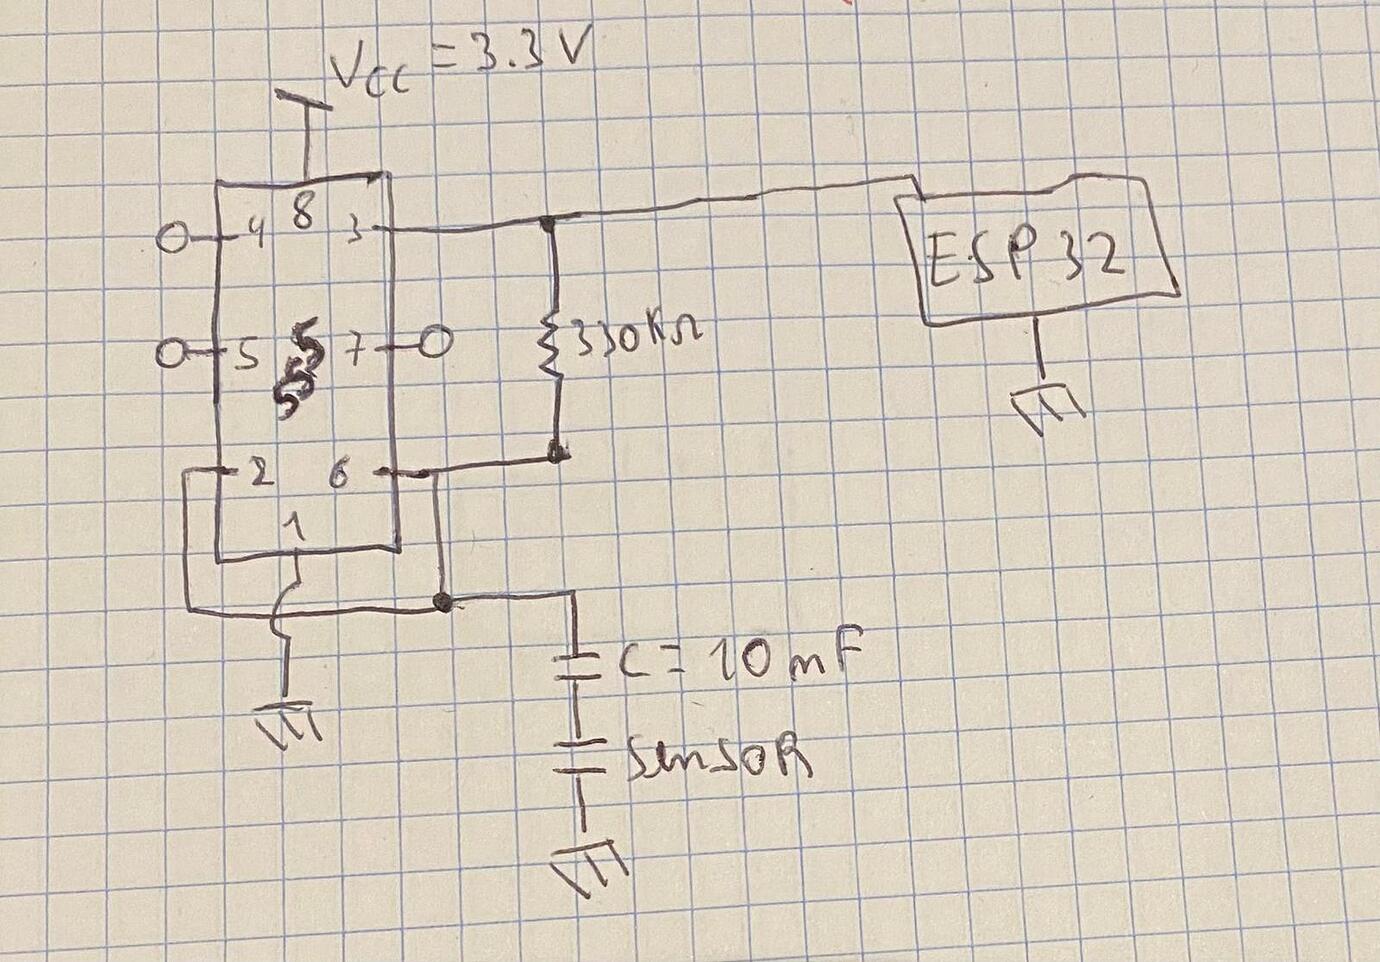 Vcc = 3.3 V
4 8 3
ESP32
5 555 7
330KΩ
2 6
1
C = 10 mF
SENSOR